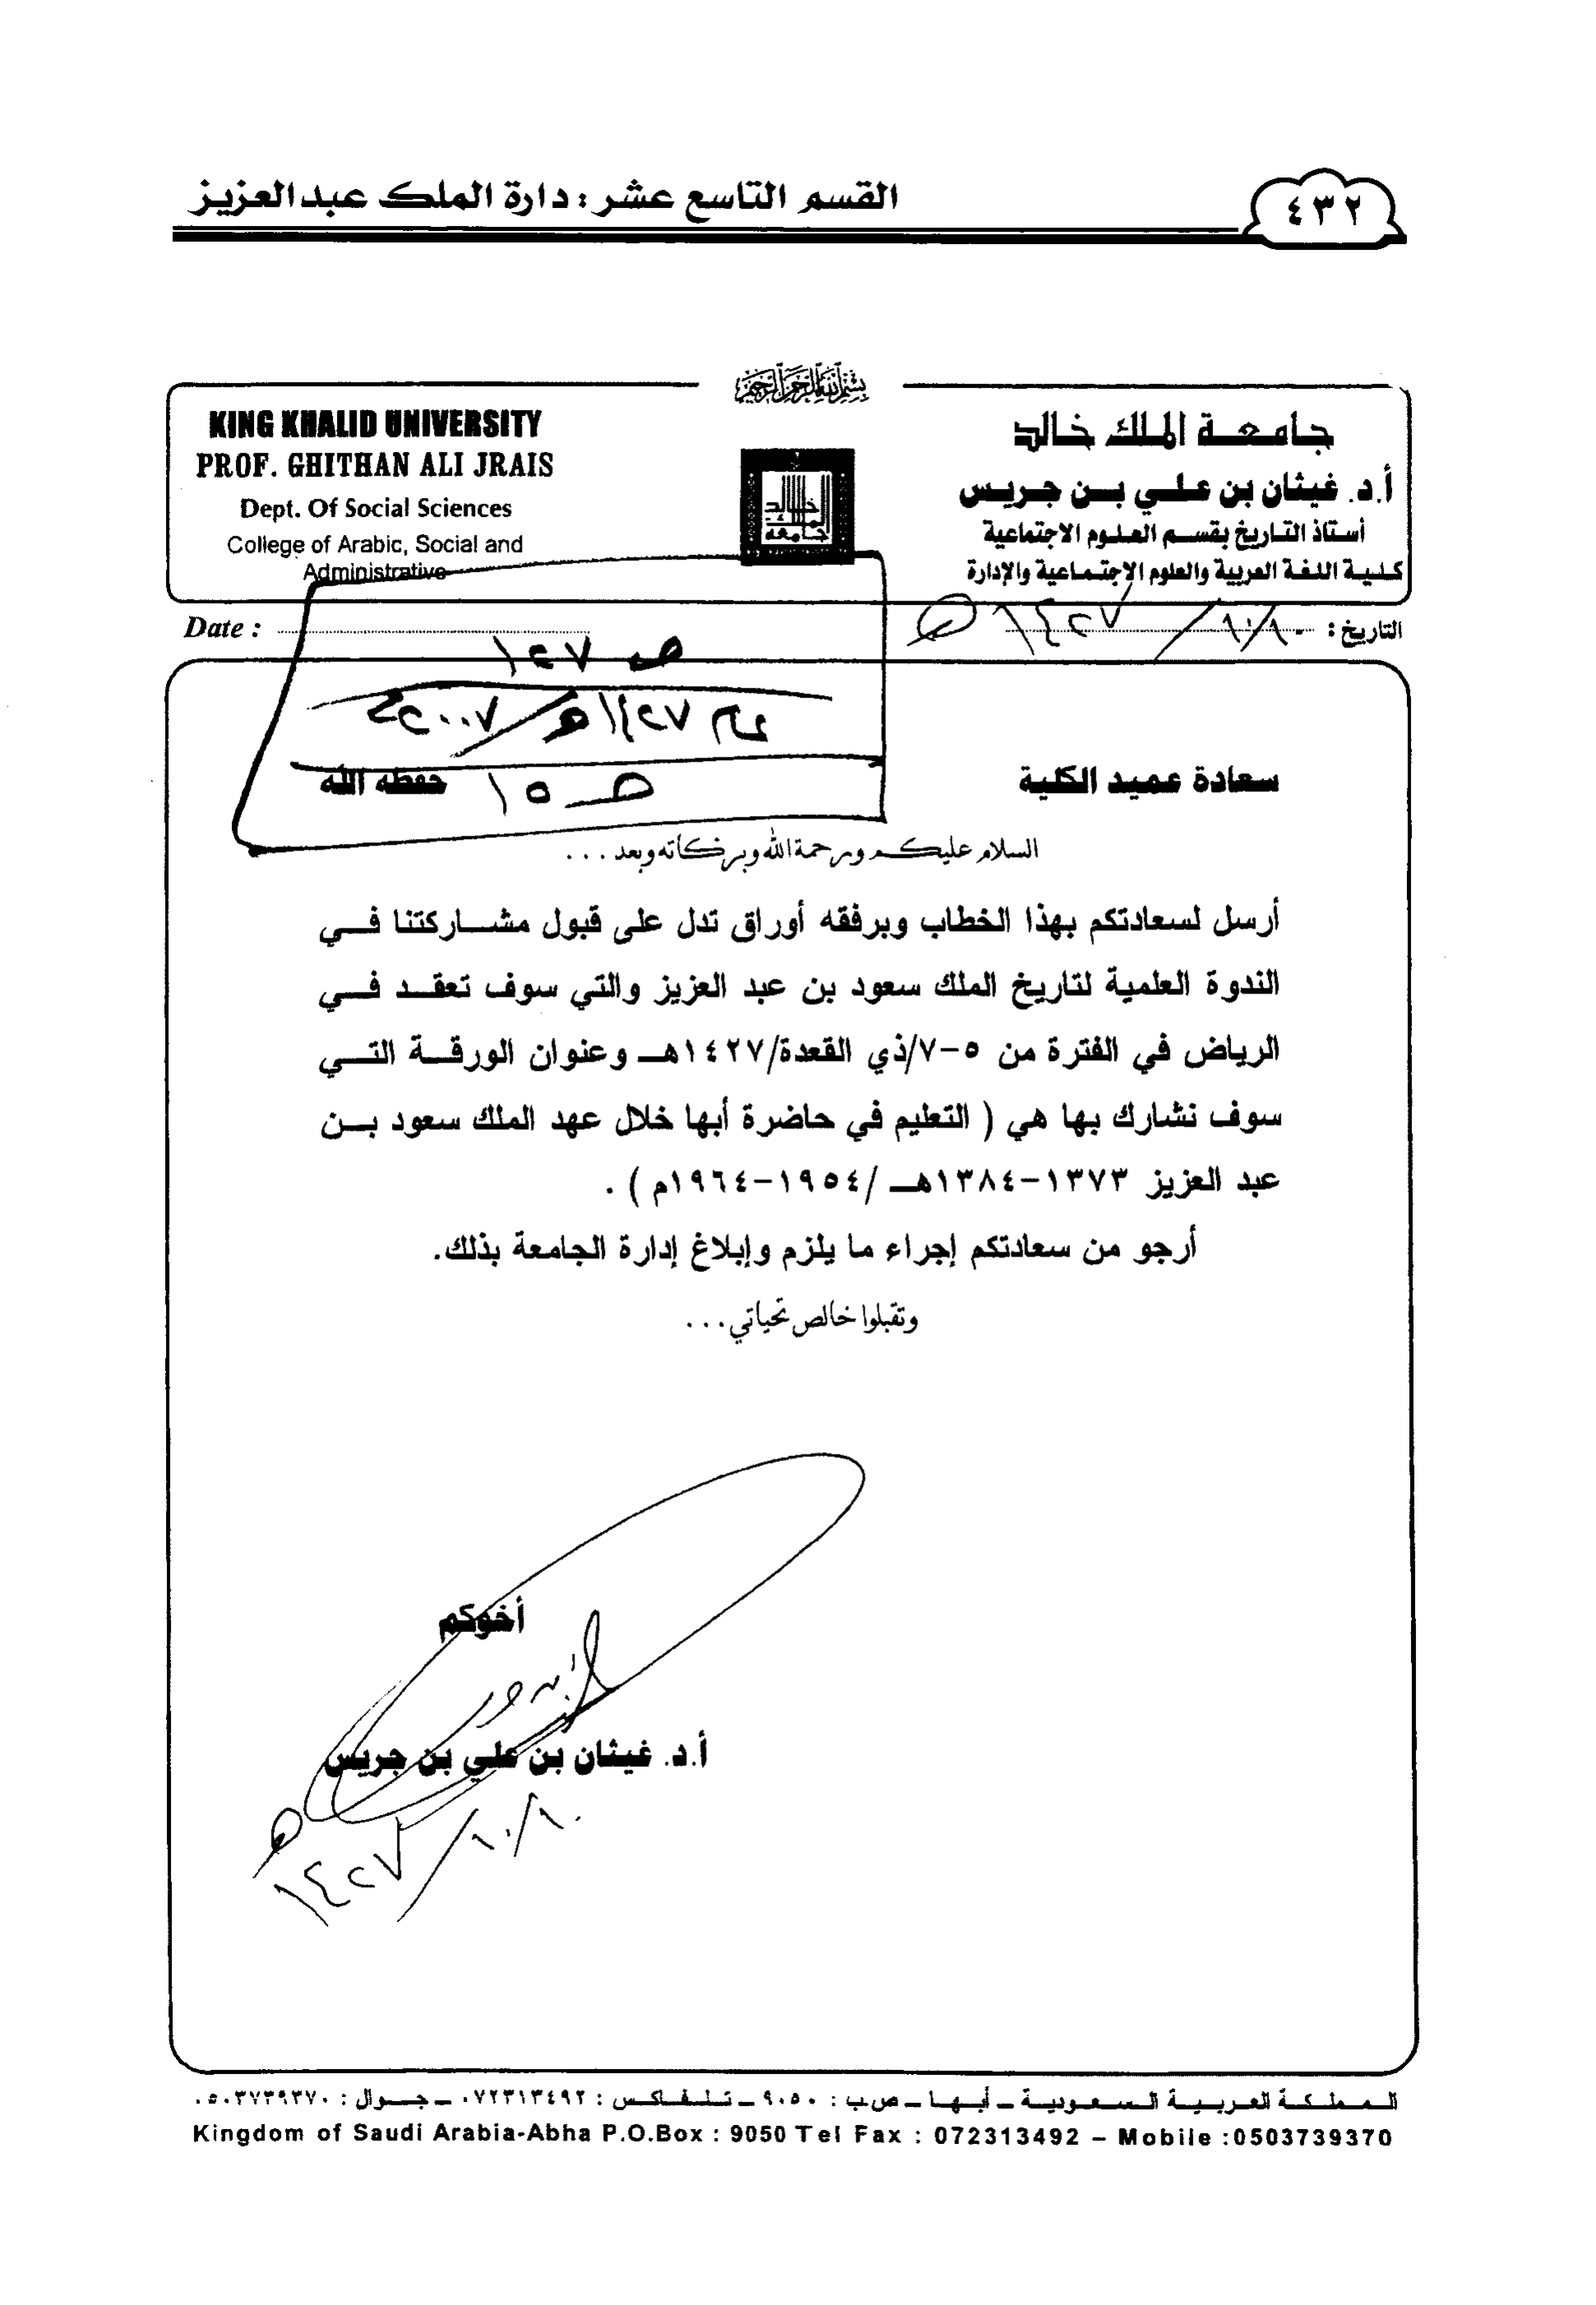 ٤٣٢
القسم التاسع عشر : دارة الملك عبدالعزيز
بسم الله الرحمن الرحيم
جامعة الملك خالد
أ.د. غيثان بن علي بن جريس
أستاذ التاريخ بقسم العلوم الاجتماعية
كلية اللغة العربية والعلوم الاجتماعية والإدارة
جامعة الملك خالد
KING KHALID UNIVERSITY
PROF. GHITHAN ALI JRAIS
Dept. Of Social Sciences
College of Arabic, Social and
Administrative
التاريخ : ١٠/١٠/١٤٢٧هـ
Date :
١٤٢٧هـ / ٢٠٠٧م
سعادة عميد الكلية حفظه الله
السلام عليكم ورحمة الله وبركاته وبعد ...
أرسل لسعادتكم بهذا الخطاب وبرفقه أوراق تدل على قبول مشاركتنا في
الندوة العلمية لتاريخ الملك سعود بن عبد العزيز والتي سوف تعقد في
الرياض في الفترة من ٥-٧/ذي القعدة/١٤٢٧هـ وعنوان الورقة التي
سوف نشارك بها هي ( التعليم في حاضرة أبها خلال عهد الملك سعود بن
عبد العزيز ١٣٧٣-١٣٨٤هـ /١٩٥٤-١٩٦٤م ) .
أرجو من سعادتكم إجراء ما يلزم وإبلاغ إدارة الجامعة بذلك.
وتقبلوا خالص تحياتي ...
أخوكم
أ.د. غيثان بن علي بن جريس
١٠/١٠/١٤٢٧هـ
المملكة العربية السعودية – أبها – ص.ب : ٩٠٥٠ – تلفاكس : ٠٧٢٣١٣٤٩٢ – جوال : ٠٥٠٣٧٣٩٣٧٠
Kingdom of Saudi Arabia-Abha P.O.Box : 9050 Tel Fax : 072313492 – Mobile :0503739370